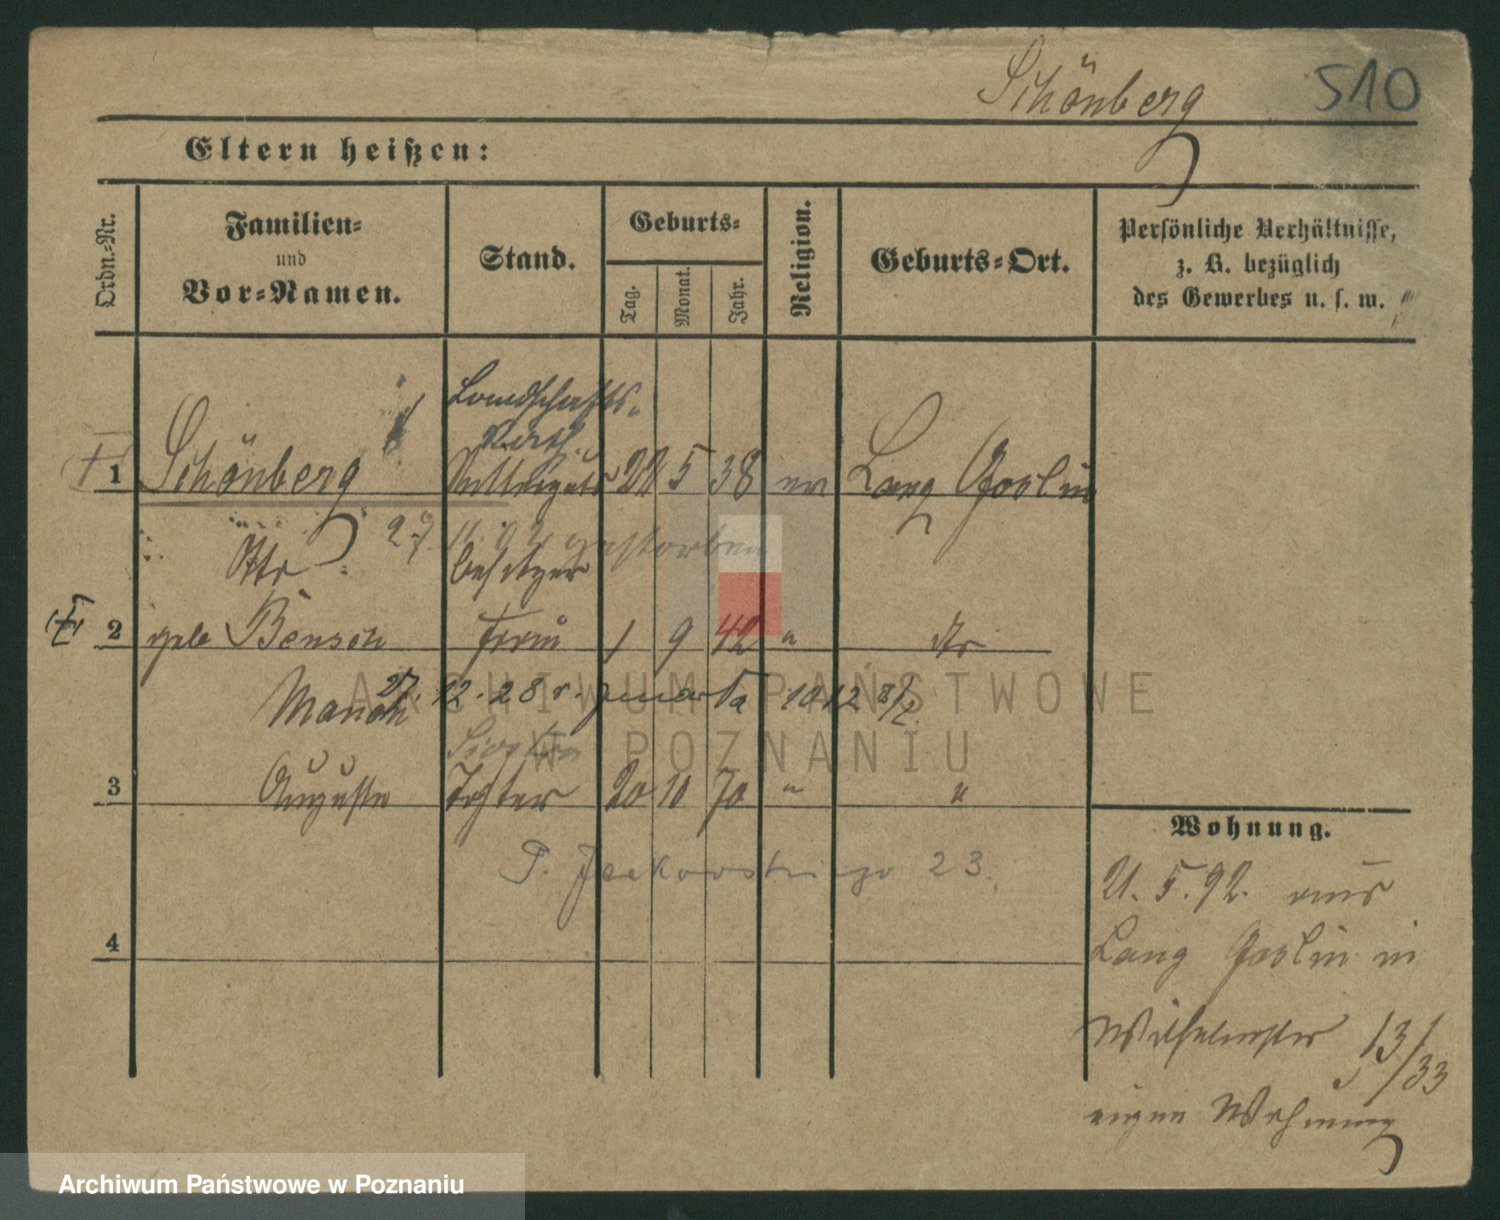 Schönberg 510
Eltern heißen:
Ordn.-Nr.
Familien-
und
Vor-Namen.
Stand.
Geburts-
Tag.
Monat.
Jahr.
Religion.
Geburts-Ort.
Persönliche Verhältnisse,
z. B. bezüglich
des Gewerbes u. s. w.
Landschafts-
Rath
1 Schönberg Ritterguts 22 5 38 ev Lang Goslin
27. 11. 92 gestorben
Otto besitzer
2 geb Bensch Frau 1 9 42 " do
27. 12. 28
ARCHIWUM PAŃSTWOWE
W POZNANIU
3 Auguste Tochter 20 10 70 " "
23.
4
Wohnung.
21. 5. 92. aus
Lang Goslin in
Wilhelmstr 13/33
eigene Wohnung
Archiwum Państwowe w Poznaniu